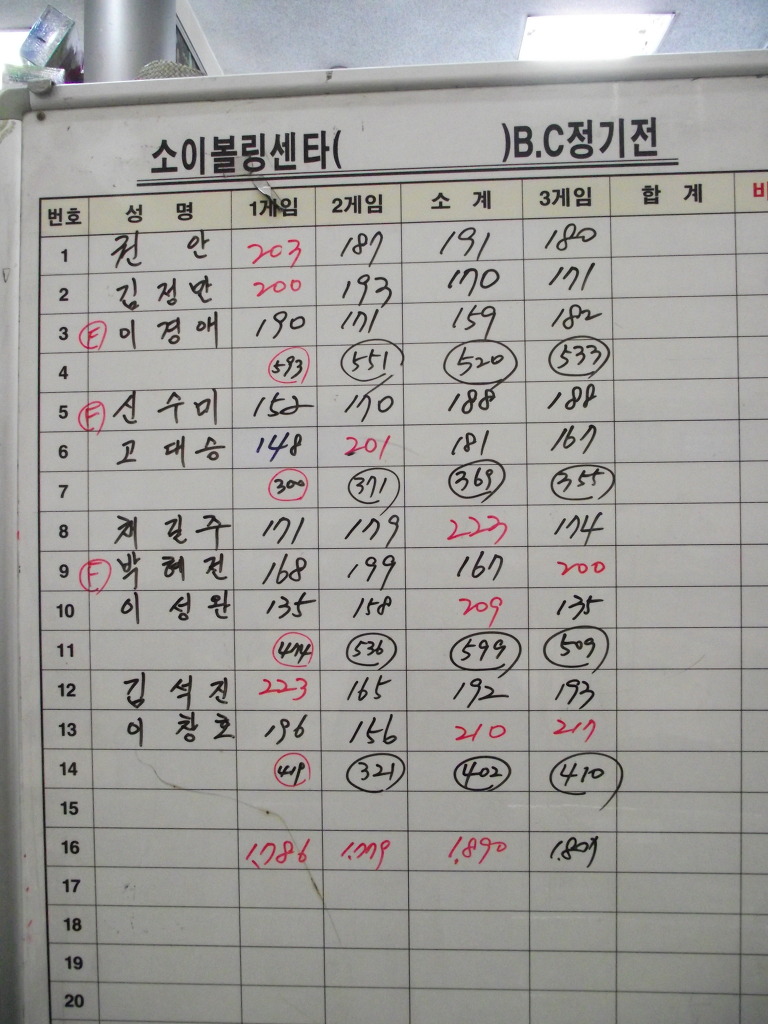 소이볼링센타( )B.C정기전
번호 성 명 1게임 2게임 소 계 3게임 합 계 비
1 권 안 203 187 191 180
2 김 정 만 200 193 170 171
3 F 이 경 애 190 171 159 182
4 593 551 520 533
5 F 신 수 미 152 170 188 188
6 고 대 승 148 201 181 167
7 300 371 369 355
8 채 길 주 171 179 223 174
9 F 박 혜 전 168 199 167 200
10 이 성 완 135 158 209 135
11 474 536 599 509
12 김 석 진 223 165 192 193
13 이 창 호 196 156 210 217
14 419 321 402 410
15
16 1.786 1.779 1.890 1.807
17
18
19
20